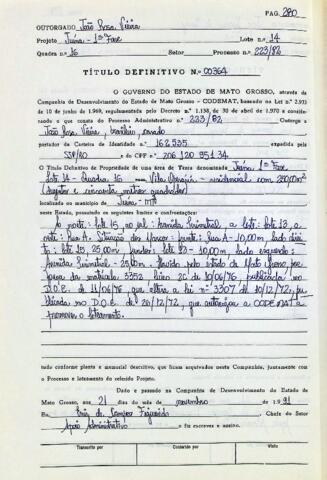 PAG. 280
OUTORGADO João Rosa Vieira
Projeto Juína - 1ª Fase Lote n.º 14
Quadra n.º 16 Setor Processo n.º 223/82
TÍTULO DEFINITIVO N.º 00364
O GOVERNO DO ESTADO DE MATO GROSSO, através da
Companhia de Desenvolvimento do Estado de Mato Grosso - CODEMAT, baseado na Lei n.º 2.933
de 10 de junho de 1969, regulamentada pelo Decreto n.º 1.138, de 30 de abril de 1970 e considerando
o que consta do Processo Administrativo n.º 223/82 Outorga a
João Rosa Vieira, brasileiro, casado
portador da Carteira de Identidade n.º 162.535 expedida pela
SSP/RO e do CPF n.º 206 120 951 34
O Título Definitivo de Propriedade de uma área de Terra denominada Juína - 1ª Fase
Lote 14 - Quadra 16 residencial com 250,00m²
(duzentos e cincoenta metros quadrados)
localizada no município de Juína - MT
neste Estado, possuindo os seguintes limites e confrontações:
Ao norte: lote 15, ao sul: Avenida Perimetral, a leste: lote 13, a
oeste: Rua A. Situação dos Marcos: frente: Rua A - 10,00m lado direi
to: lote 15, 25,00m, fundos: lote 13 - 10,00m lado esquerdo:
Avenida Perimetral - 25,00m. Havido pelo estado de Mato Grosso, por
força da matrícula 3352, livro 2C de 10/06/76 publicada no
D.O.E. de 11/06/76, que altera a lei nº 3307 de 18/12/72, pu
blicada no D.O.E. de 26/12/72, que autoriza a CODEMAT a
promover o loteamento.
tudo conforme planta e memorial descritivo, que ficam arquivados nesta Companhia, juntamente com
o Processo e loteamento do referido Projeto.
Dado e passado na Companhia de Desenvolvimento do Estado de
Mato Grosso, aos 21 dias do mês de novembro de 1991
Eu, de Campos Figueiredo Chefe do Setor
Apoio Administrativo o fiz escrever e assino.
Transcrito por Conferido por Visto